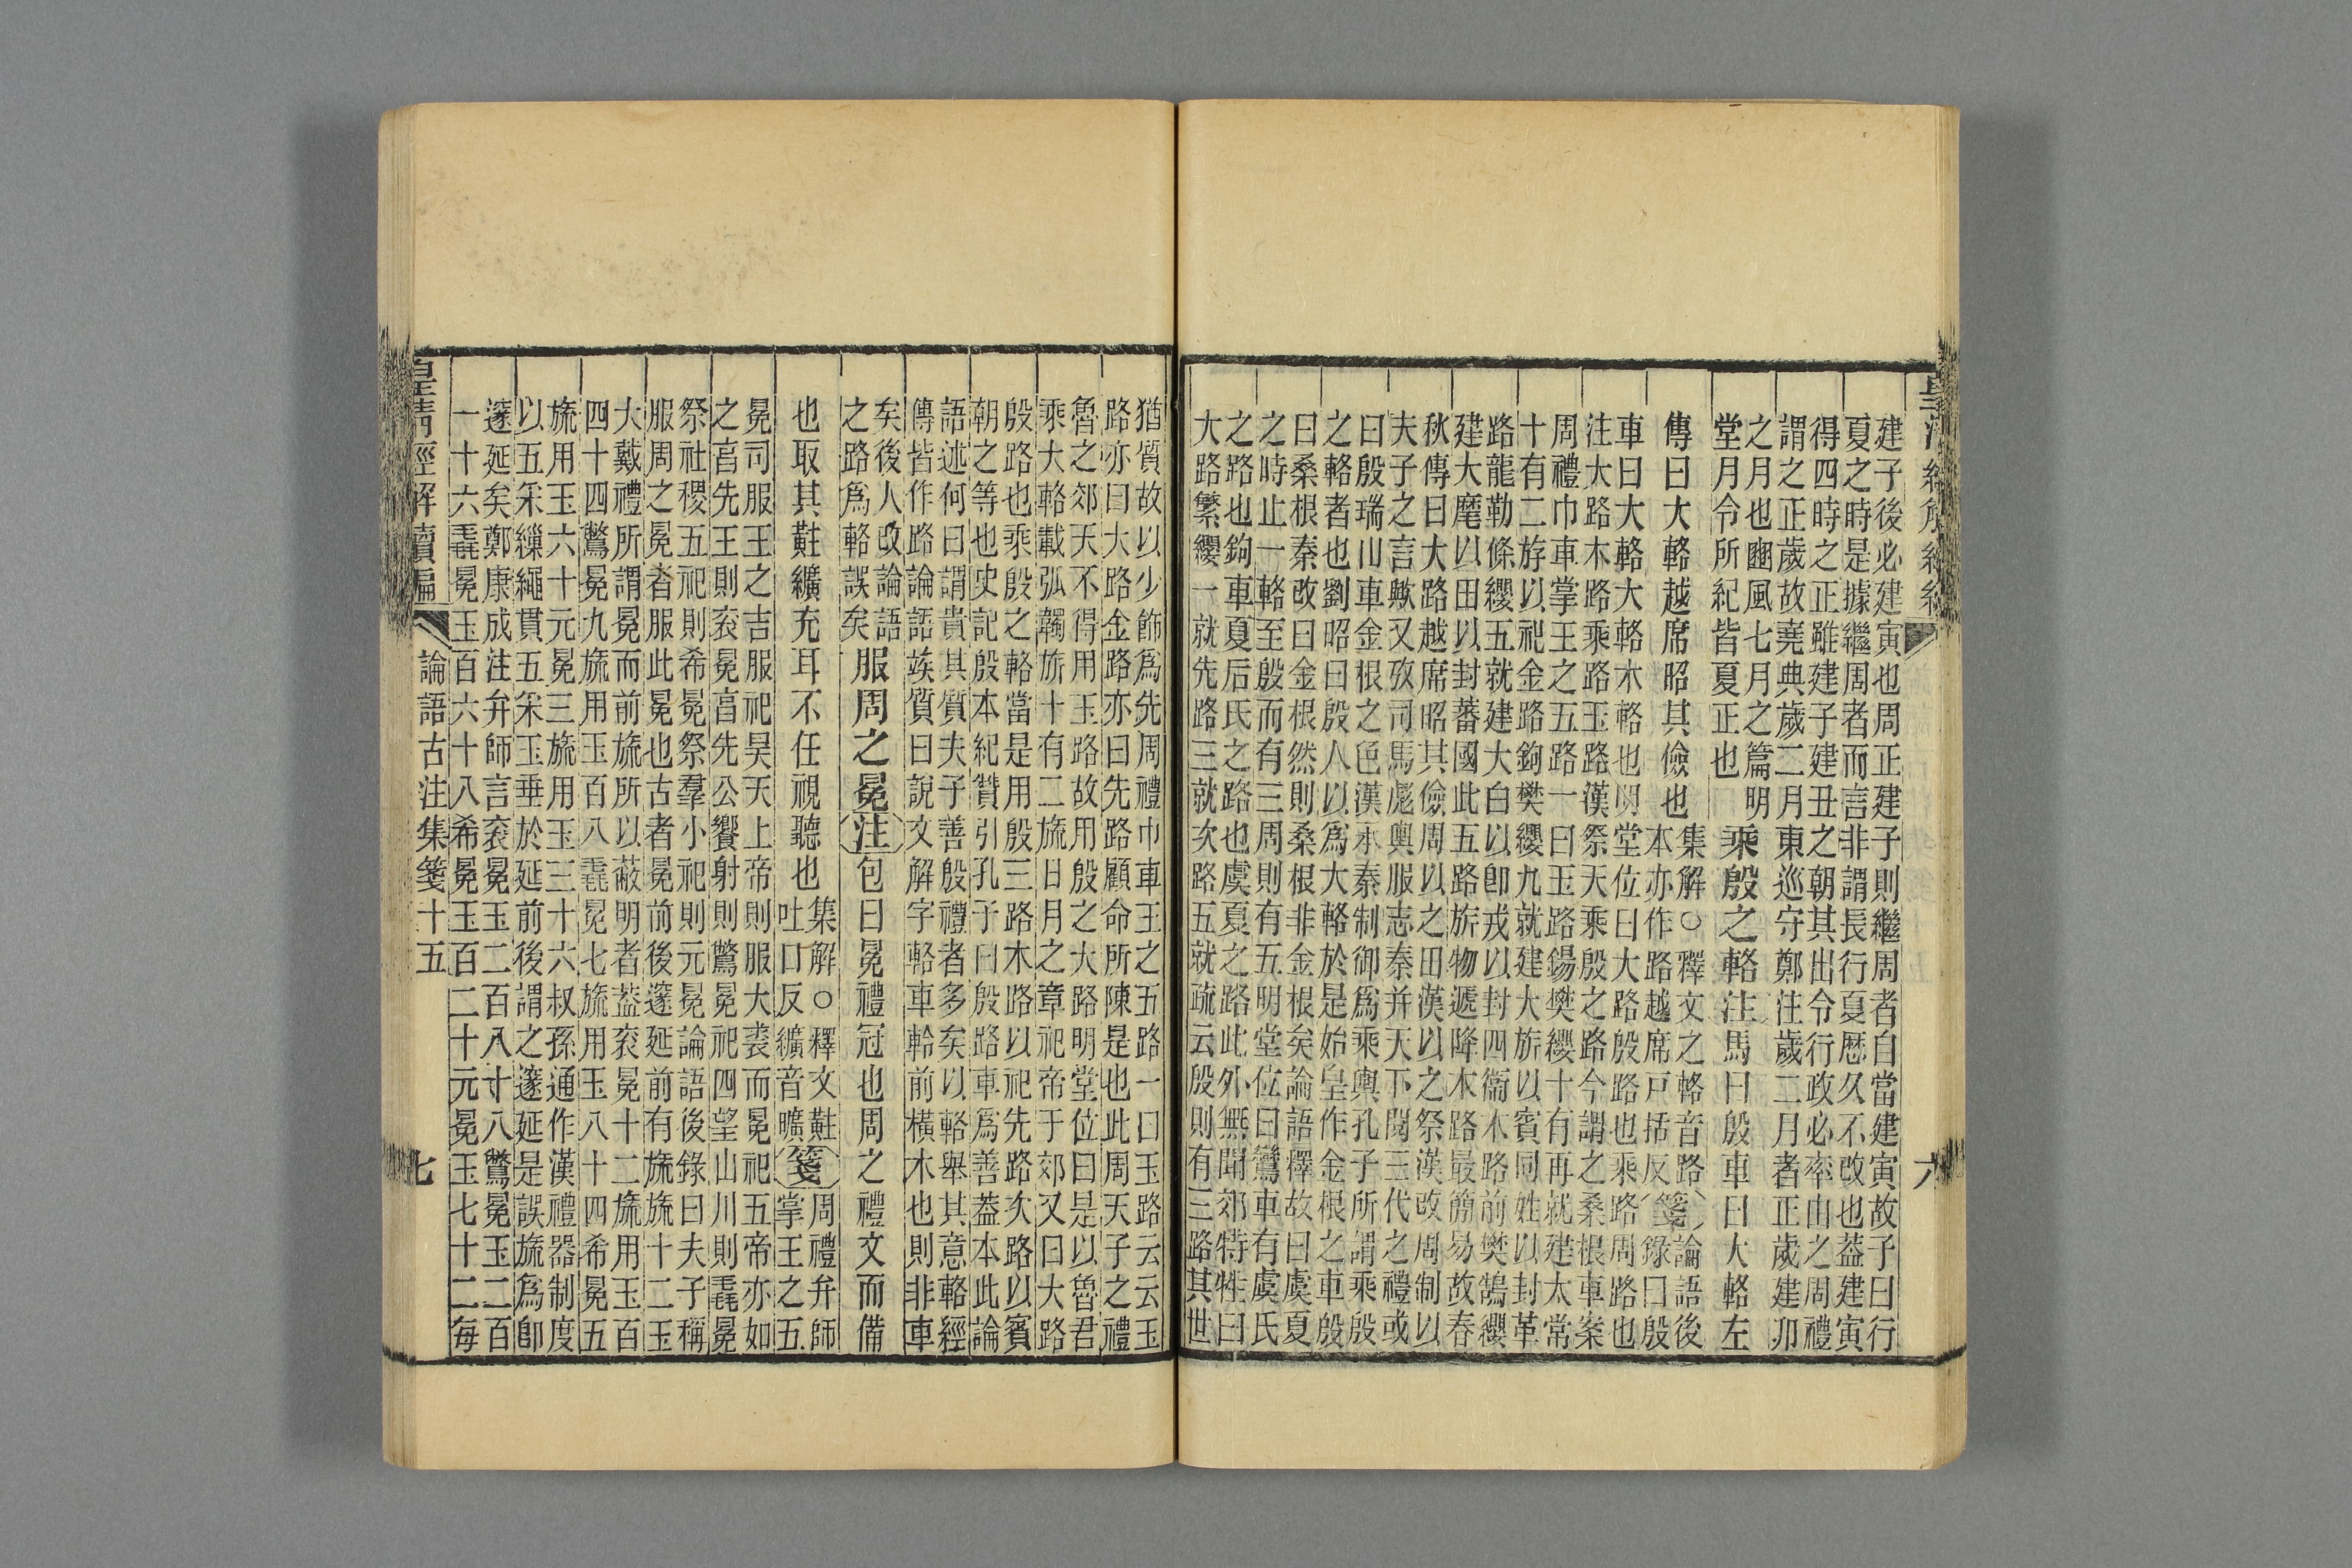 建子後必建寅也周正建子則繼周者自當建寅故子曰行
夏之時是據繼周者而言非謂長行夏厯久不改也蓋建寅
得四時之正雖建子建丑之朝其出令行政必率由之周禮
謂之正歲故堯典歲二月東巡守鄭注歲二月者正歲建卯
之月也豳風七月之篇明
堂月令所紀皆夏正也
乘殷之輅注馬曰殷車曰大輅左
傳曰大輅越席昭其儉也
集解○釋文之輅音路箋論語後
本亦作路越席戸括反錄曰殷
車曰大輅大輅木輅也明堂位曰大路殷路也乘路周路也
注大路木路乘路玉路漢祭天乘殷之路今謂之桑根車案
周禮巾車掌王之五路一曰玉路鍚樊纓十有再就建太常
十有二斿以祀金路鉤樊纓九就建大旂以賓同姓以封革
路龍勒條纓五就建大白以卽戎以封四衞木路前樊鵠纓
建大麾以田以封蕃國此五路旂物遞降木路最簡易故春
秋傳曰大路越席昭其儉周以之田漢以之祭漢改周制以
夫子之言歟又攷司馬彪輿服志秦并天下閱三代之禮或
曰殷瑞山車金根之色漢承秦制御爲乘輿孔子所謂乘殷
之輅者也劉昭曰殷人以爲大輅於是始皇作金根之車殷
曰桑根秦改曰金根然則桑根非金根矣論語釋故曰虞夏
之時止一輅至殷而有三周則有五明堂位曰鸞車有虞氏
之路也鉤車夏后氏之路也虞夏之路此外無聞郊特牲曰
大路繁纓一就先路三就次路五就疏云殷則有三路其世
六
猶質故以少飾爲先周禮巾車王之五路一曰玉路云云玉
路亦曰大路金路亦曰先路顧命所陳是也此周天子之禮
魯之郊天不得用玉路故用殷之大路明堂位曰是以魯君
乘大輅載弧韣旂十有二旒日月之章祀帝于郊又曰大路
殷路也乘殷之輅當是用殷三路木路以祀先路次路以賓
朝之等也史記殷本紀贊引孔子曰殷路車爲善蓋本此論
語述何曰謂貴其質夫子善殷禮者多矣以輅舉其意輅經
傳皆作路論語竢質曰說文解字輅車軨前橫木也則非車
矣後人改論語
之路爲輅誤矣
服周之冕注包曰冕禮冠也周之禮文而備
也取其黈纊充耳不任視聽也
集解○釋文黈箋周禮弁師
吐口反纊音曠掌王之五
冕司服王之吉服祀昊天上帝則服大裘而冕祀五帝亦如
之亯先王則衮冕亯先公饗射則鷩冕祀四望山川則毳冕
祭社稷五祀則希冕祭羣小祀則元冕論語後錄曰夫子稱
服周之冕者服此冕也古者冕前後邃延前有旒旒十二玉
大戴禮所謂冕而前旒所以蔽明者蓋衮冕十二旒用玉百
四十四鷩冕九旒用玉百八毳冕七旒用玉八十四希冕五
旒用玉六十元冕三旒用玉三十六叔孫通作漢禮器制度
以五采繅繩貫五采玉垂於延前後謂之邃延是誤旒爲卽
邃延矣鄭康成注弁師言衮冕玉二百八寸八鷩冕玉二百
一十六毳冕玉百六十八希冕玉百二十元冕玉七十二每
皇清經解續編 論語古注集箋十五 七